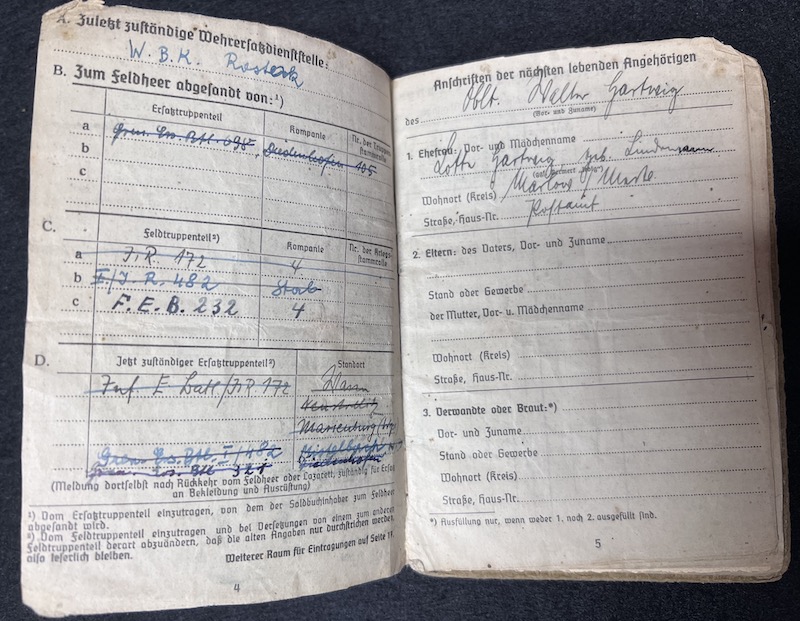 A. Zuletzt zuständige Wehrersatzdienststelle:
W. B. K. Rostock
B. Zum Feldheer abgesandt von:¹)
Ersatztruppenteil Kompanie Nr. der Truppenstammrolle
a Gren. Ers. Btl. Diedenhofen 105
b
c
C.
Feldtruppenteil²) Kompanie Nr. der Kriegsstammrolle
a J. R. 172 4
b I/J. R. 482 Stab
c F. E. B. 232 4
D.
Jetzt zuständiger Ersatztruppenteil²) Standort
Inf. E Batl/J. R. 172
Neustrelitz
Marienburg
Gren. Ers. Btl. I/482
Gren. Ers. Btl. Diedenhofen
(Meldung dortselbst nach Rückkehr vom Feldheer oder Lazarett, zuständig für Ersatz
an Bekleidung und Ausrüstung)
¹) Vom Ersatztruppenteil einzutragen, von dem der Soldbuchinhaber zum Feldheer
abgesandt wird.
²) Vom Feldtruppenteil einzutragen und bei Versetzungen von einem zum anderen
Feldtruppenteil derart abzuändern, daß die alten Angaben nur durchstrichen werden,
also leserlich bleiben.
Weiterer Raum für Eintragungen auf Seite 17
4
Anschriften der nächsten lebenden Angehörigen
des Oblt. Walter Hartwig
(Vor- und Zuname)
1. Ehefrau: Vor- und Mädchenname
Lotte Hartwig, geb. Lindemann
Wohnort (Kreis) Marlow
Straße, Haus-Nr. Postamt
2. Eltern: des Vaters, Vor- und Zuname
Stand oder Gewerbe
der Mutter, Vor- u. Mädchenname
Wohnort (Kreis)
Straße, Haus-Nr.
3. Verwandte oder Braut:*)
Vor- und Zuname
Stand oder Gewerbe
Wohnort (Kreis)
Straße, Haus-Nr.
*) Ausfüllung nur, wenn weder 1. noch 2. ausgefüllt sind.
5